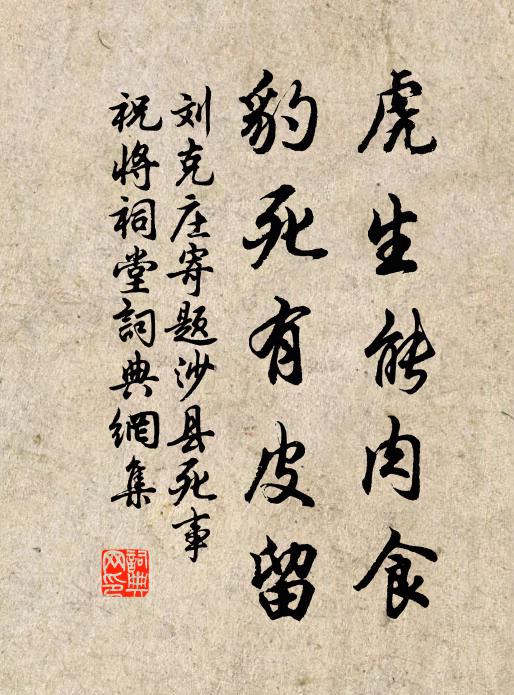 虎生能肉食
豹死有皮留
刘克庄寄题沙县死事
祝将祠堂詞典網集
詞典网印